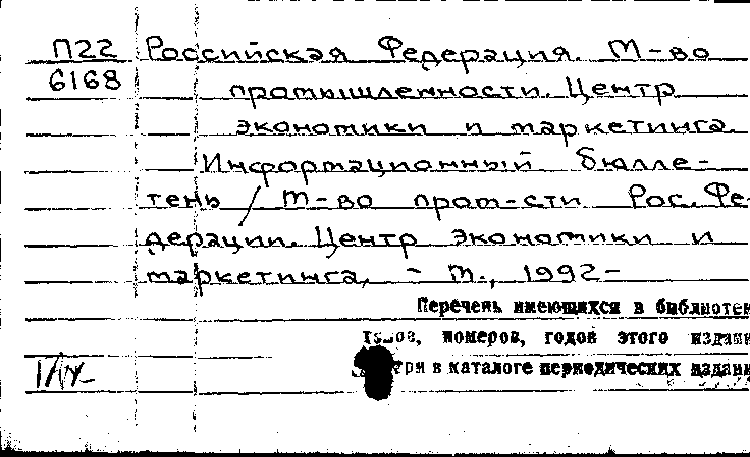 П22 Российская Федерация. М-во
6168 промышленности. Центр
экономики и маркетинга
Информационный бюлле-
тень / М-во пром-сти Рос. Фе-
дерации. Центр экономики и
маркетинга, - М., 1992-
Перечень имеющихся в библиотек
томов, номеров, годов этого издани
три в каталоге периодических издани